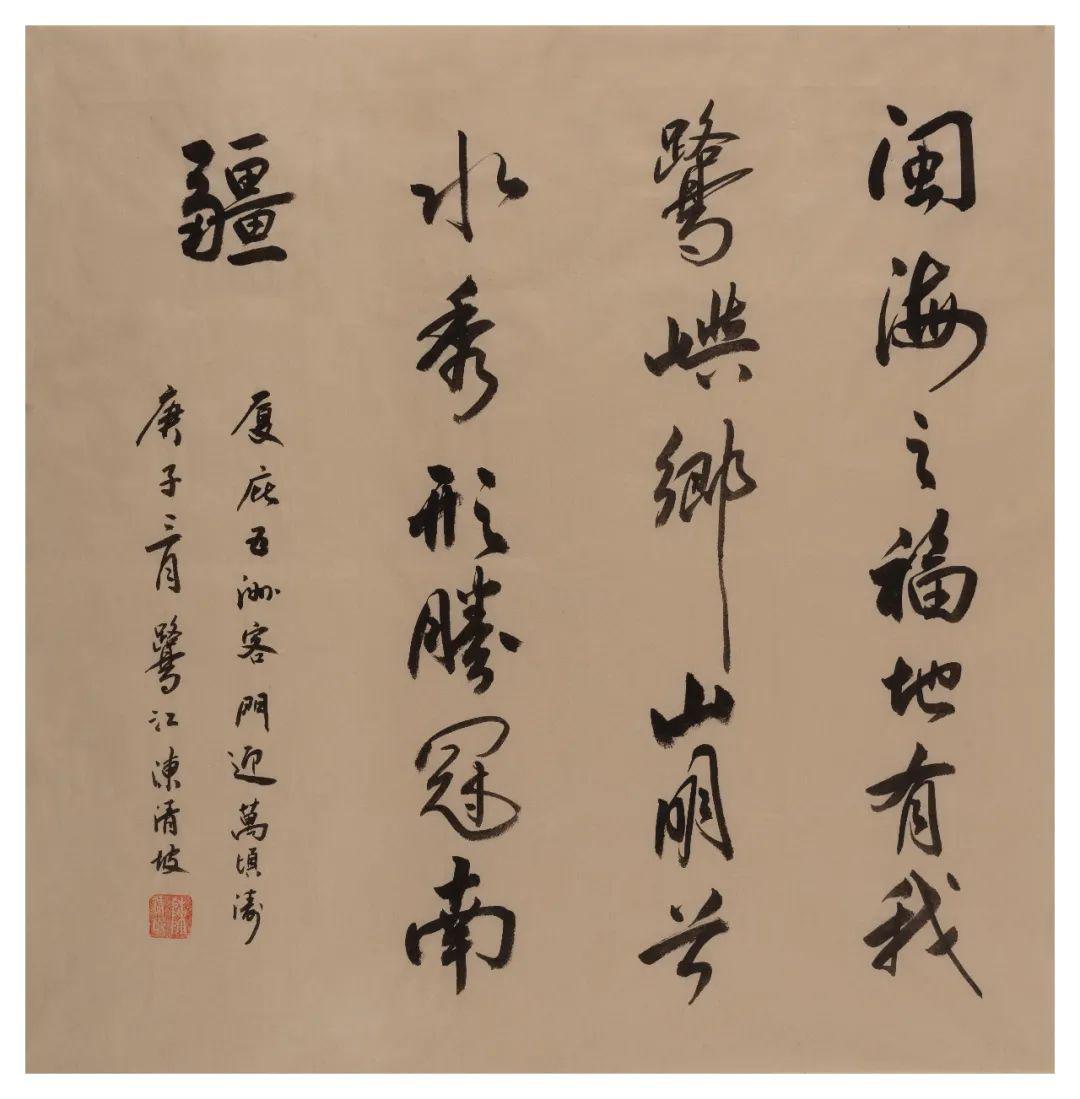 閩海之福地有我
鷺嶼鄉山明兮
水秀形勝冠南
疆
厦庇五洲客門迎萬頃濤
庚子三月鷺江陳清坡